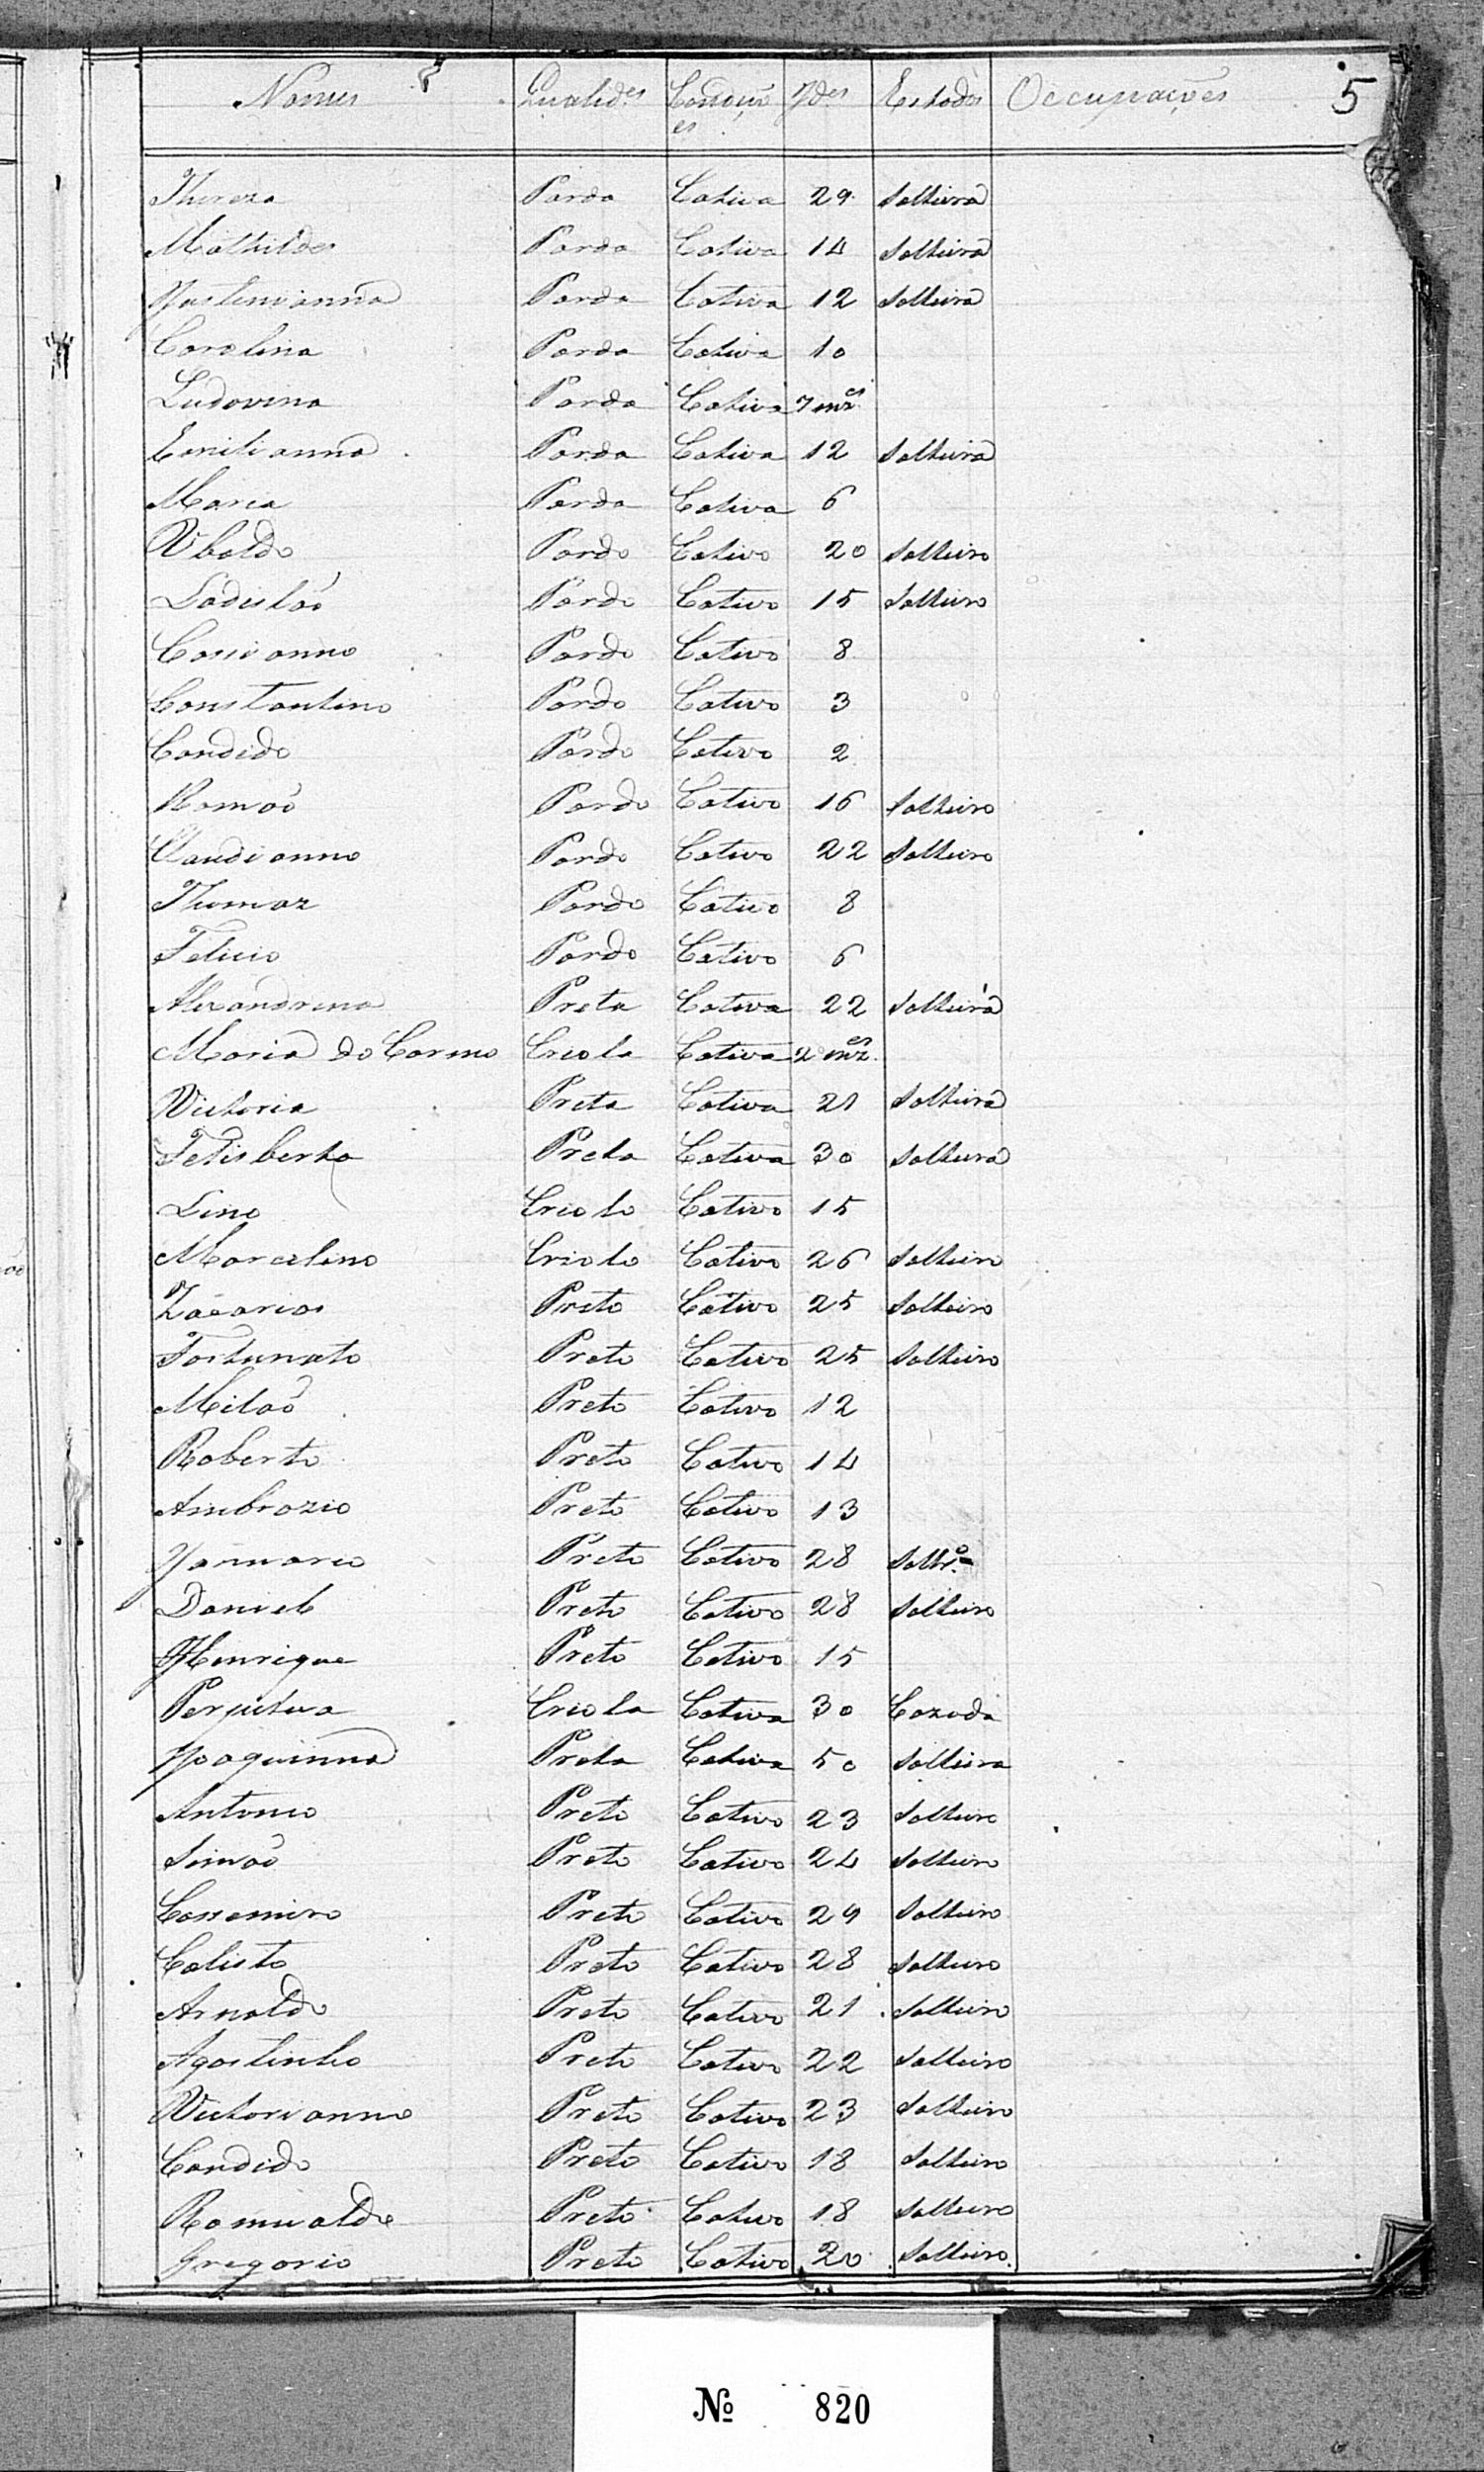 Nomes Qualid.es Condiçõ Id.es Estados Occupações 5
es
Thereza Parda Cativa 29 Solteira
Mathildes Parda Cativa 14 Solteira
Justiniana Parda Cativa 12 Solteira
Carolina Parda Cativa 10
Ludovina Parda Cativa 7 mz.es
Emilianna Parda Cativa 12 Solteira
Maria Parda Cativa 6
Ubaldo Pardo Cativo 20 Solteiro
Ladisláo Pardo Cativo 15 Solteiro
Cassianno Pardo Cativo 8
Constantino Pardo Cativo 3
Candido Pardo Cativo 2
Romaõ Pardo Cativo 16 Solteiro
Claudianno Pardo Cativo 22 Solteiro
Thomaz Pardo Cativo 8
Felicio Pardo Cativo 6
Alexandrina Preta Cativa 22 Solteira
Maria do Carmo Criola Cativa 2 mz.es
Victoria Preta Cativa 21 Solteira
Felisberta Preta Cativa 30 Solteira
Lino Criolo Cativo 15
Marcelino Criolo Cativo 26 Solteiro
Zacarias Preto Cativo 25 Solteiro
Fortunato Preto Cativo 25 Solteiro
Milaõ Preto Cativo 12
Roberto Preto Cativo 14
Ambrozio Preto Cativo 13
Januario Preto Cativo 28 Soltr.º
Daniel Preto Cativo 28 Solteiro
Henrique Preto Cativo 15
Perpetua Criola Cativa 30 Cazada
Joaquinna Preta Cativa 50 Solteira
Antonio Preto Cativo 23 Solteiro
Simaõ Preto Cativo 24 Solteiro
Cassemiro Preto Cativo 29 Solteiro
Calisto Preto Cativo 28 Solteiro
Arnaldo Preto Cativo 21 Solteiro
Agostinho Preto Cativo 22 Solteiro
Victorianno Preto Cativo 23 Solteiro
Candido Preto Cativo 18 Solteiro
Romualdo Preto Cativo 18 Solteiro
Gregorio Preto Cativo 20 Solteiro
№ 820